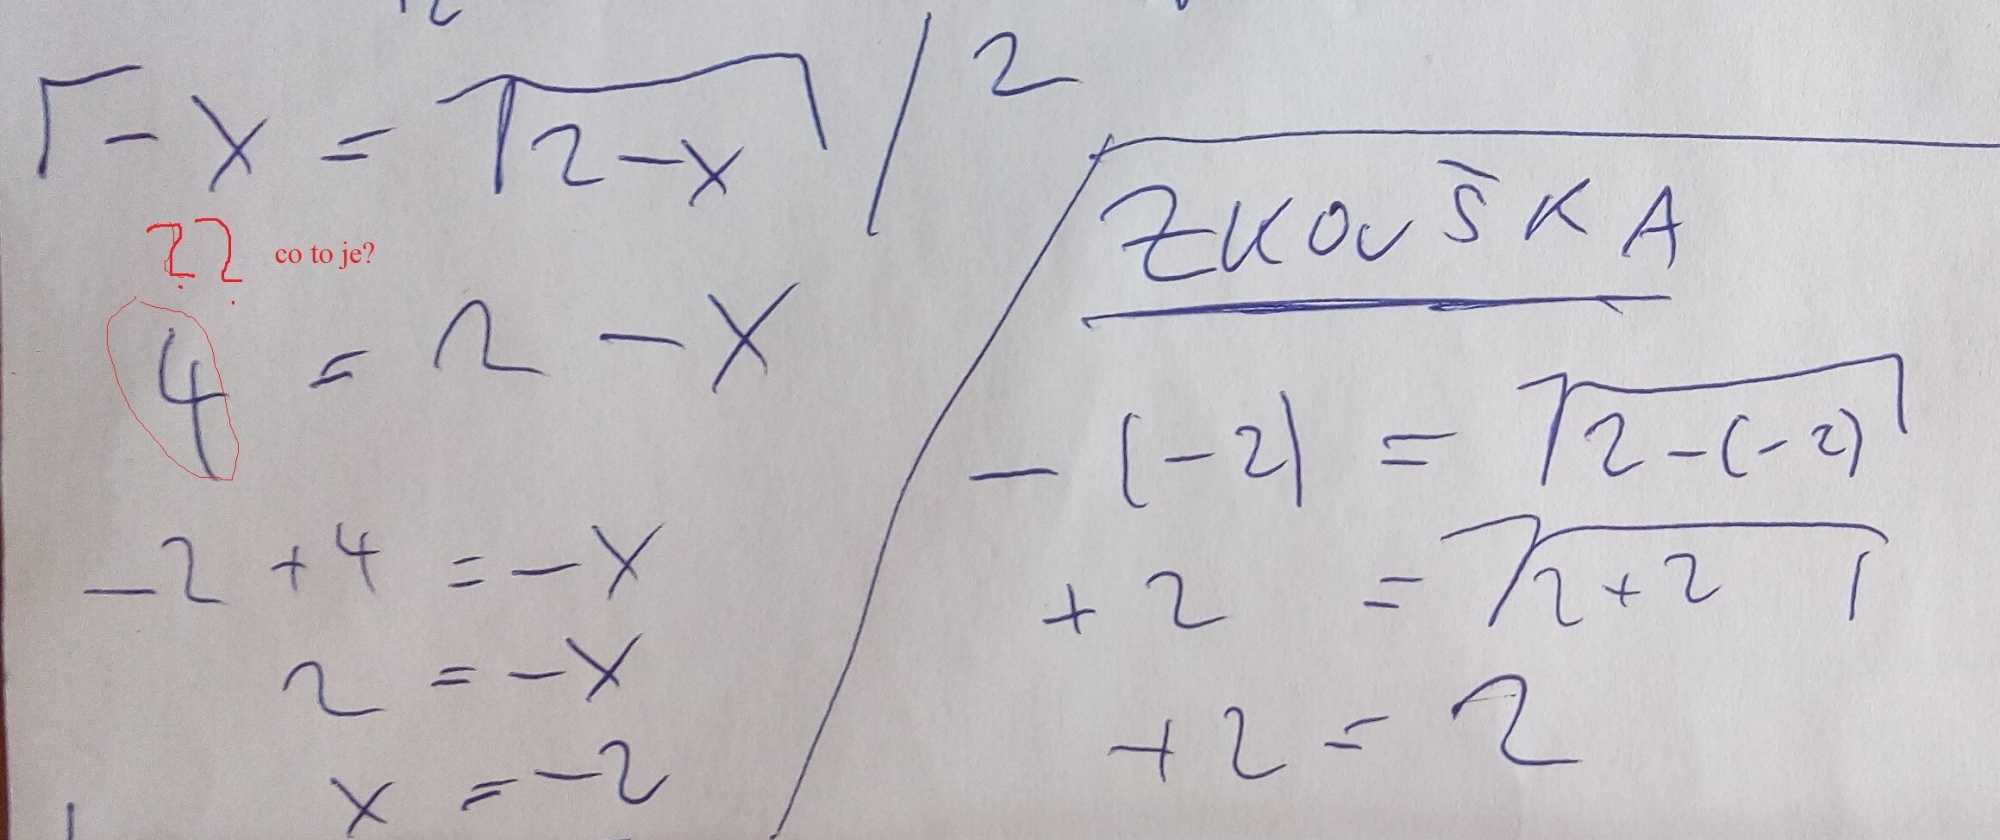 Γ - x = √2-x / 2
?? co to je?
4 = 2 - x
-2 + 4 = -x
2 = -x
x = -2
ZKOUŠKA
- (-2) = √2-(-2)
+ 2 = √2+2
+ 2 = 2